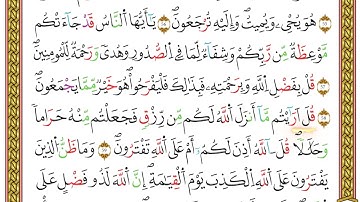 هُوَ يُحْيِۦ وَيُمِيتُ وَإِلَيْهِ تُرْجَعُونَ ۝٥٦ يَٰٓأَيُّهَا ٱلنَّاسُ قَدْ جَآءَتْكُم
مَّوْعِظَةٌ مِّن رَّبِّكُمْ وَشِفَآءٌ لِّمَا فِى ٱلصُّدُورِ وَهُدًى وَرَحْمَةٌ لِّلْمُؤْمِنِينَ ۝٥٧
قُلْ بِفَضْلِ ٱللَّهِ وَبِرَحْمَتِهِۦ فَبِذَٰلِكَ فَلْيَفْرَحُوا۟ هُوَ خَيْرٌ مِّمَّا يَجْمَعُونَ ۝٥٨
قُلْ أَرَءَيْتُم مَّآ أَنزَلَ ٱللَّهُ لَكُم مِّن رِّزْقٍ فَجَعَلْتُم مِّنْهُ حَرَامًا
وَحَلَٰلًا قُلْ ءَآللَّهُ أَذِنَ لَكُمْ أَمْ عَلَى ٱللَّهِ تَفْتَرُونَ ۝٥٩ وَمَا ظَنُّ ٱلَّذِينَ
يَفْتَرُونَ عَلَى ٱللَّهِ ٱلْكَذِبَ يَوْمَ ٱلْقِيَٰمَةِ إِنَّ ٱللَّهَ لَذُو فَضْلٍ عَلَى